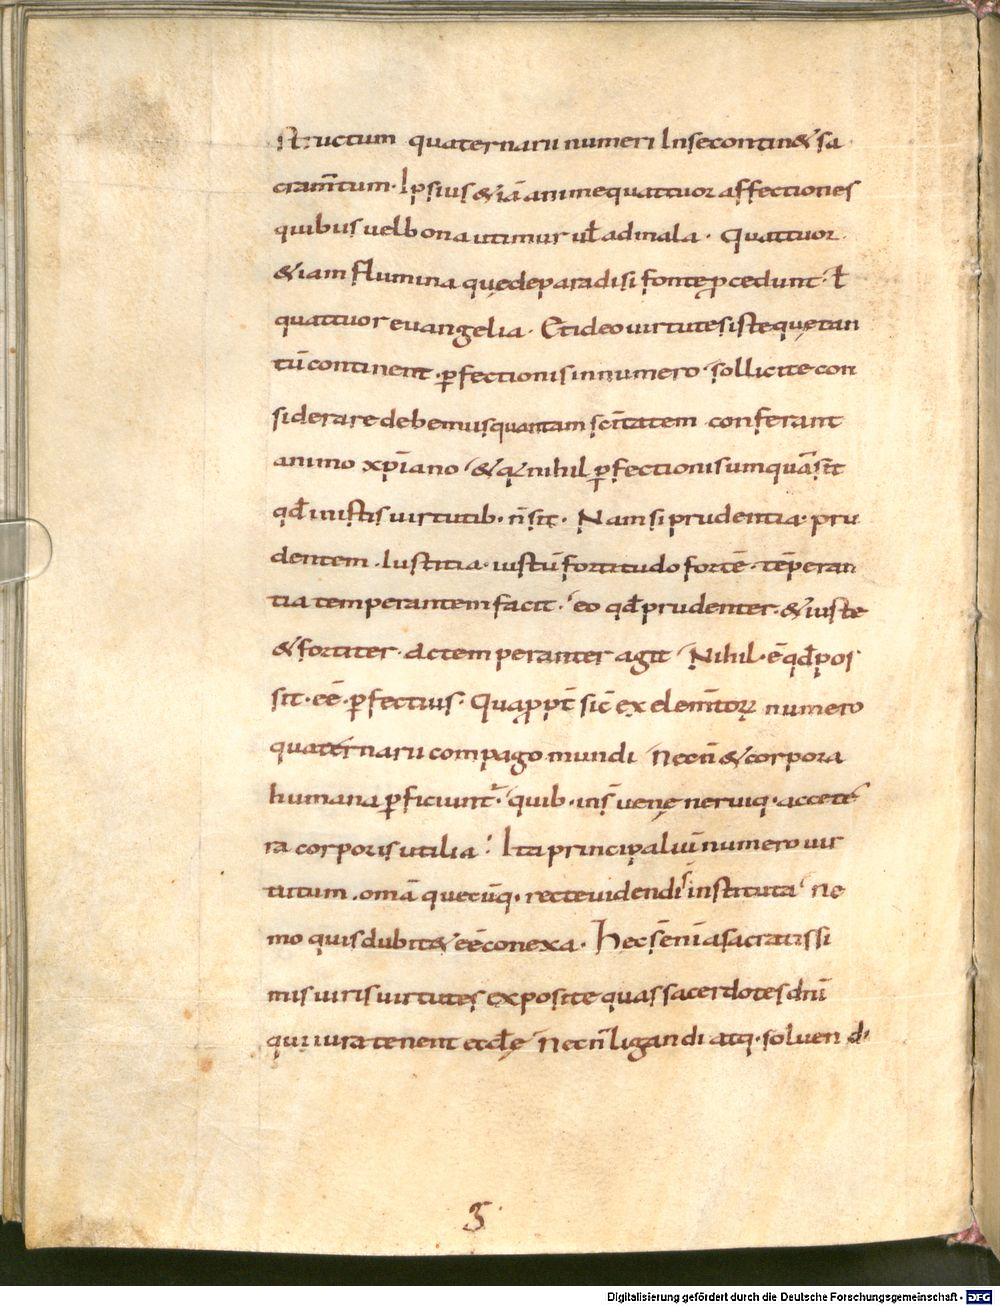 structum quaternarii numeri Insecontin& sa
cram̄tum· Ipsius &iā anime quattuor affectiones
quibus uel bona utimur uƚ ad mala · Quattuor
&iam flumina quę de paradisi fonte ꝓcedunt · ƚ
quattuor euangelia · Et ideo uirtutes iste quę tan
tū continent ꝑfectionis in numero · sollicite con
siderare debemus quantam sc̄itatem conferant
animo xp̄iano · & qꝛ nihil ꝑfectionis umquā sit
qđ in istis uirtutib· n̄ sit · Nam si prudentia · pru
dentem · Iustitia · iustū fortitudo fortē · tēperan
tia temperantem facit · eo qđ prudenter · & iuste
& fortiter · ac temperanter agit Nihil · ē qđ pos
sit · eē · ꝑfectius · Quaꝓpt̄ sic̄ ex elem̄torꝝ numero
quaternarii compago mundi Necn̄ & corpora
humana ꝑficiunt᷑ · quib · ins̄ uenę neruiq · a ccetē
ra corporis utilia : Ita principaliū numero uir
tutum · om̄a quecūq · recte uidendi instituta ne
mo quis dubit& eē conexa · Hec s̄ enī a sacratissi
mis uiris uirtutes exposite quas sacerdotes dn̄i
qui iura tenent eccƚę Necn̄ ligandi atq· soluendi·
3
Digitalisierung gefördert durch die Deutsche Forschungsgemeinschaft - DFG